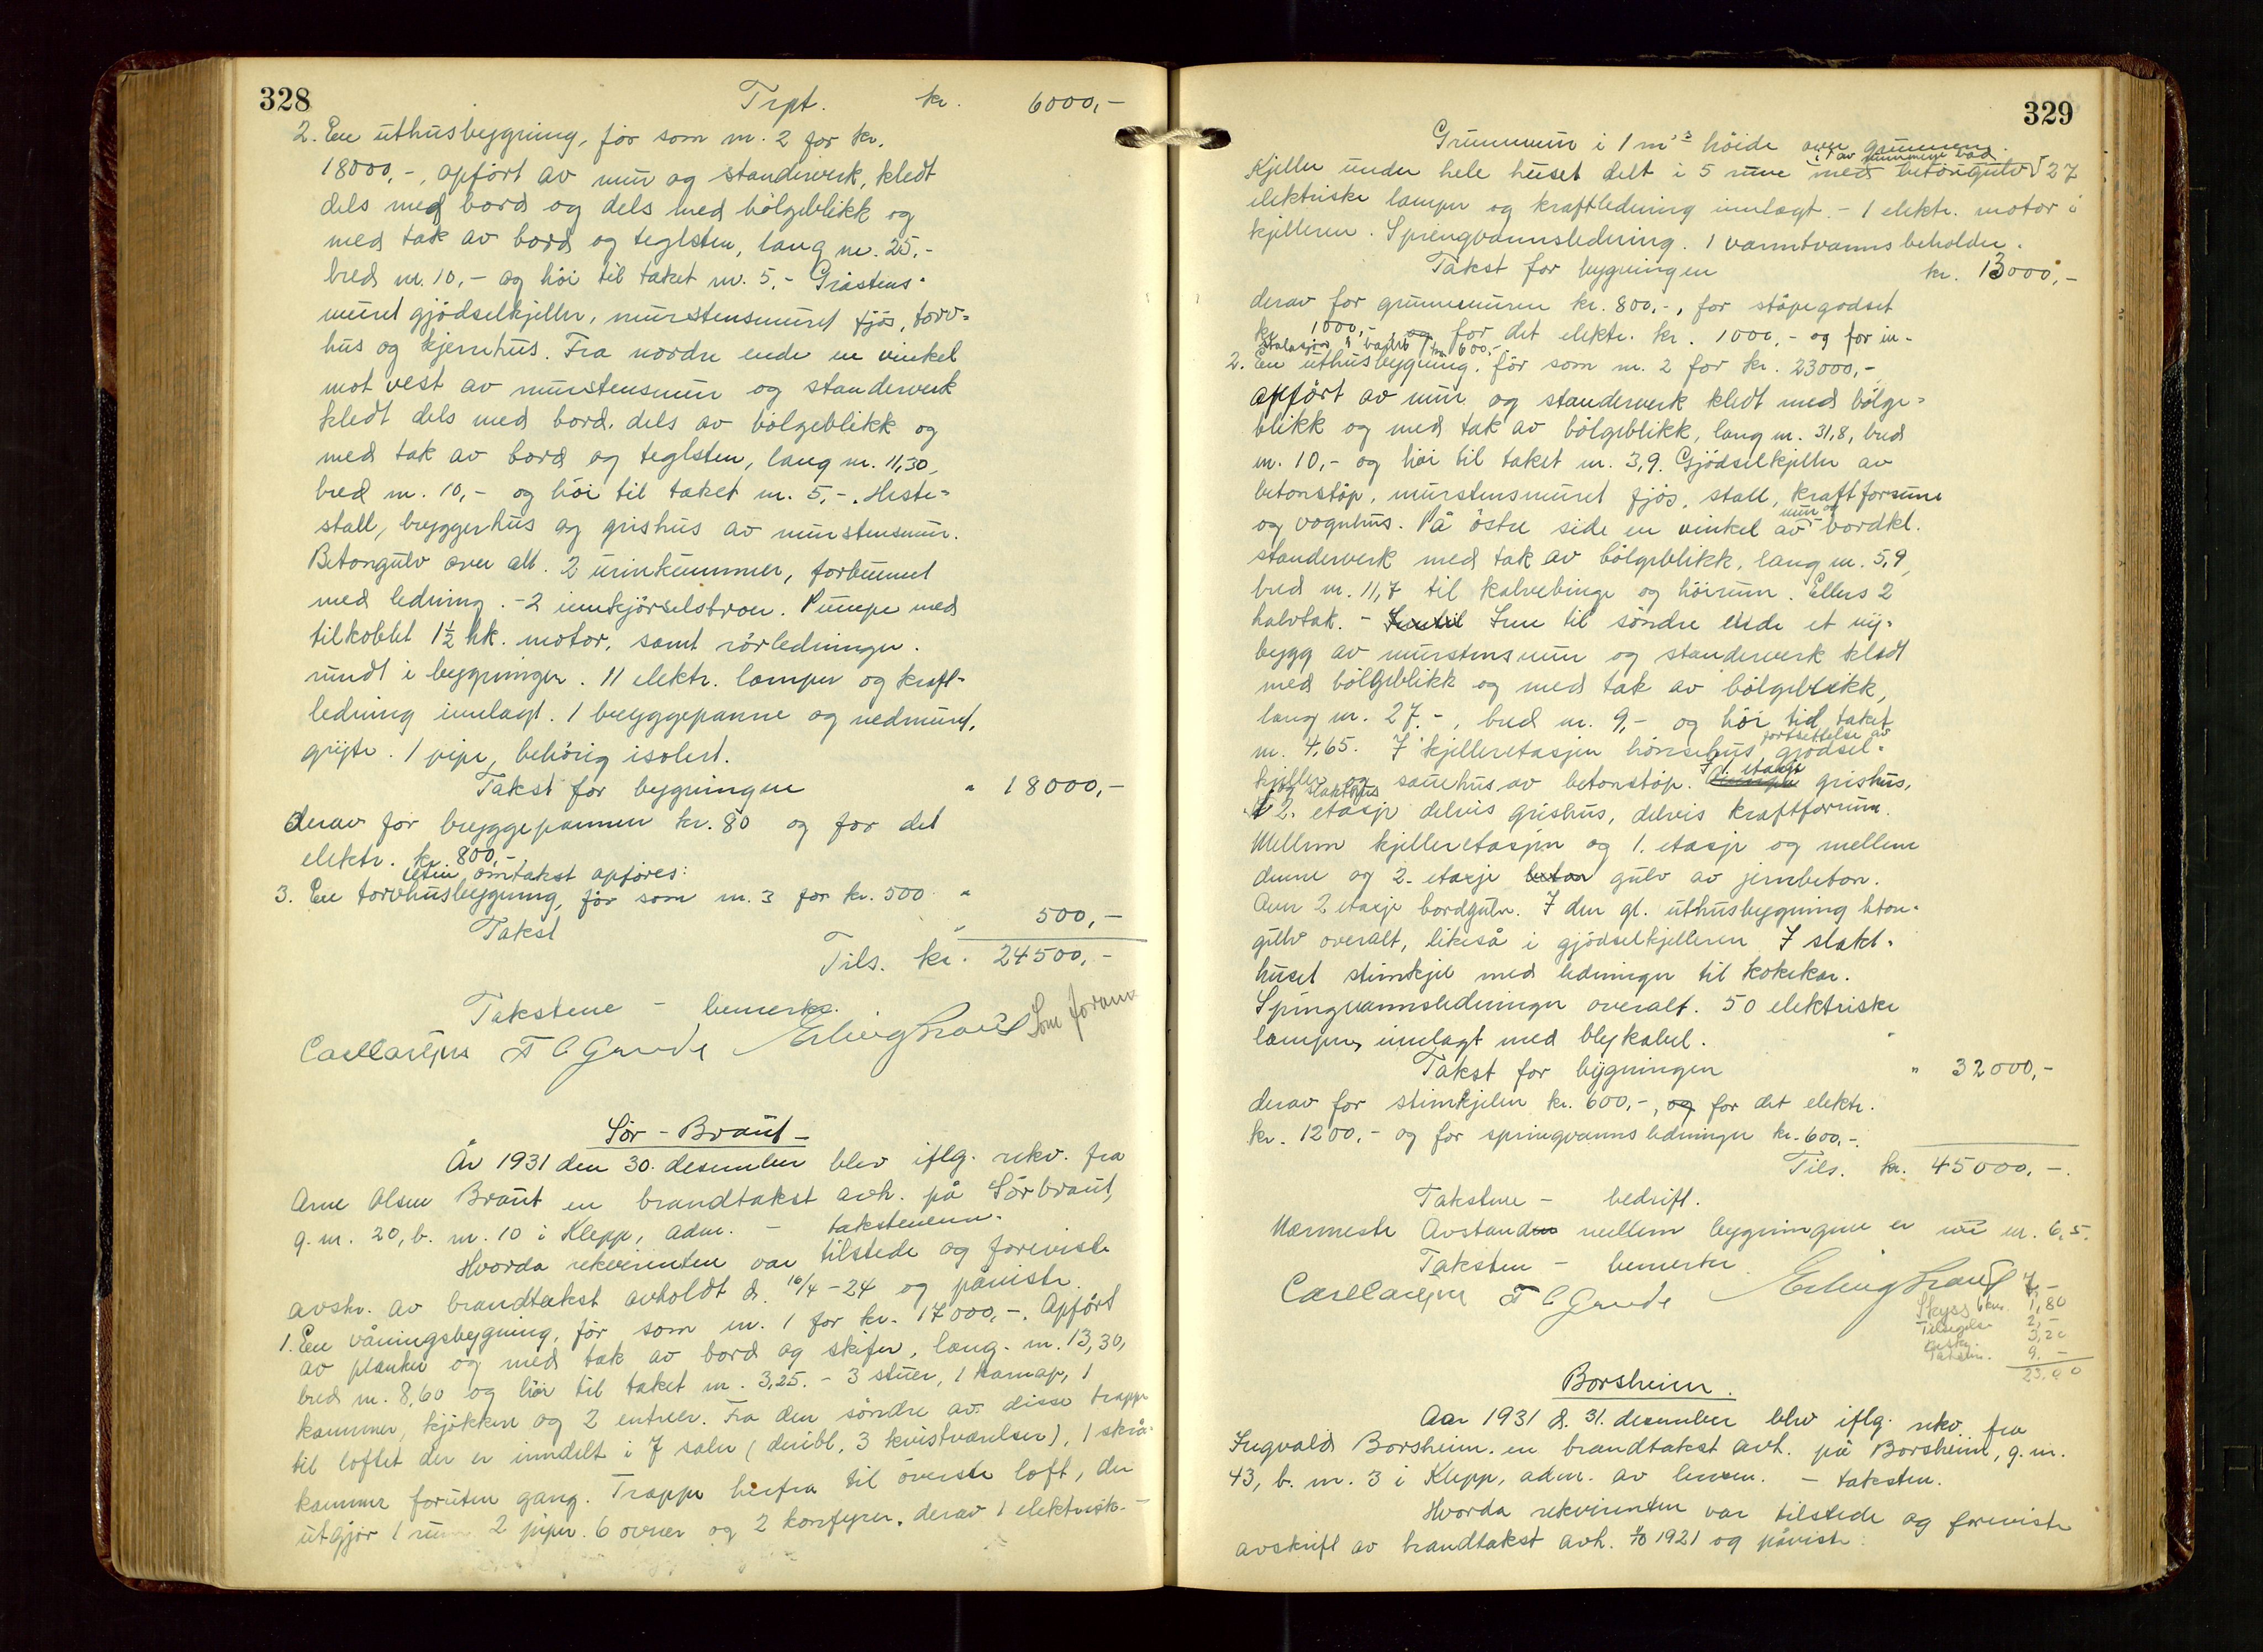 328
Trpt. kr. 6000,-
2. En uthusbygning, før som nr. 2 for kr.
18000,-, opført av mur og standerverk, kledt
dels med bord og dels med bølgeblikk og
med tak av bord og teglsten, lang m. 25,-
bred m. 10,- og høi til taket m. 5,- Gråstens-
muret gjødselkjeller, murstensmuret fjøs, torv-
hus og kjernehus. Fra nordre ende en vinkel
mot vest av murstensmur og standerverk
kledt dels med bord, dels av bølgeblikk og
med tak av bord og teglsten, lang m. 11,30,
bred m. 10,- og høi til taket m. 5,-. Heste-
stall, bryggerhus og grishus av murstensmur.
Betongulv over alt. 2 urinkummer, forbunnet
med ledning. - 2 innkjørselsbroer. Pumpe med
tilkoblet 1½ hk. motor, samt rørledninger
rundt i bygningen. 11 elektr. lamper og kraft-
ledning innlagt. 1 bryggepanne og nedmuret
gryte. 1 pipe, behørig isolert.
Takst for bygningen " 18000,-
derav for bryggepannen kr. 80 og for det
elektr. kr. 800,-.
Uten omtakst opføres:
3. En torvhusbygning, før som nr. 3 for kr. 500 "
Takst " 500,-
Tils. kr. 24500,-
Takstene - bemerke.
Carl Carlsen F C Grude Erling Braut Som formann
Sør-Braut
År 1931 den 30. desember blev iflg. rekv. fra
Arne Olsen Braut en brandtakst avh. på Sørbraut,
g. nr. 20, b. nr. 10 i Klepp, adm. - takstmenn.
Hvorda rekvirenten var tilstede og foreviste
avskr. av brandtakst avholdt d. 16/4-24 og påviste.
1. En våningsbygning, før som nr. 1 for kr. 17000,-. Opført
av planker og med tak av bord og skifer, lang m. 13,30,
bred m. 8,60 og høi til taket m. 3,25. - 3 stuer, 1 kamap, 1
kammer, kjøkken og 2 entreer. Fra den søndre av disse trappe
til loftet der er inndelt i 7 saler (deribl. 3 kvistværelser), 1 skrå-
kammer foruten gang. Trappe herfra til øverste loft, der
utgjør 1 rum 2 piper. 6 ovner og 2 komfyrer, derav 1 elektrisk. -
329
Grunnmur i 1 m's høide over grunnen.
Kjeller under hele huset delt i 5 rum med betongulv 27
i 1 av rummene bad
elektriske lamper og kraftledning innlagt. - 1 elektr. motor i
kjelleren. Springvannsledning. 1 varmtvannsbeholder.
Takst for bygningen kr. 13000,-
derav for grunnmuren kr. 800,-, for støpegodset
kr. 1000,-, og for det elektr. kr. 1000,- og for in-
stalasjon i badet kr. 600,-
2. En uthusbygning, før som nr. 2 for kr. 23000,-
opført av mur og standerverk kledt med bølge-
blikk og med tak av bølgeblikk, lang m. 31,8, bred
m. 10,- og høi til taket m. 3,9. Gjødselkjeller av
betonstøp, murstensmuret fjøs, stall, kraftforrum
og vognhus. På østre side en vinkel av mur og bordkl.
standerverk med tak av bølgeblikk, lang m. 5,9,
bred m. 11,7 til kalvebinge og høirum. Ellers 2
halvtak. - Inn til søndre ende et ny-
bygg av murstensmur og standerverk kledt
med bølgeblikk og med tak av bølgeblikk,
lang m. 27,-, bred m. 9,- og høi til taket
m. 4,65. I kjelleretasjen hønsehus, fortsettelse av gjødsel-
kjeller og sauehus av betonstøp. I 1. etasje grishus,
og slakthus
I 2. etasje delvis grishus, delvis kraftforrum.
Mellem kjelleretasjen og 1. etasje og mellem
denne og 2. etasje beton gulv av jernbeton.
Over 2 etasje bordgulv. I den gl. uthusbygning beton-
gulv overalt, likeså i gjødselkjelleren I slakt-
huset stimkjel med ledninger til kokekar.
Springvannsledninger overalt. 50 elektriske
lamper, innlagt med blykabel.
Takst for bygningen " 32000,-
derav for stimkjelen kr. 600,-, og for det elektr.
kr. 1200,- og for springvannsledninger kr. 600,-.
Tils. kr. 45000,-.
Takstene - bedrift.
Nærmeste Avstanden mellem bygningene er m. 6,5.
Taksten - bemerker.
Carl Carlsen F C Grude Erling Braut 7,-
Skyss 6 km. 1,80
Tilsigelse 2,-
avskr. 3,20
Takstm. 9,-
23,00
Borsheim.
Aar 1931 d. 31. desember blev iflg. rekv. fra
Ingvald Borsheim en brandtakst avh. på Borsheim, g. nr.
43, b. nr. 3 i Klepp, adm. av lensm. - taksten.
Hvorda rekvirenten var tilstede og foreviste
avskrift av brandtakst avh. 1/10 1921 og påviste: